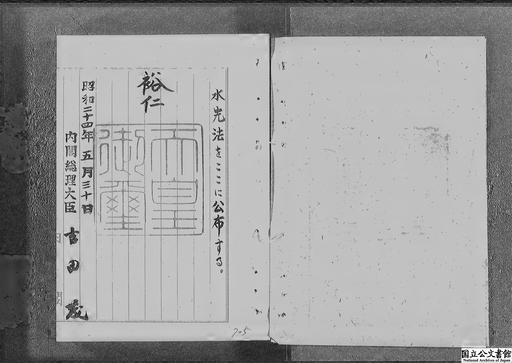 水先法をここに公布する。
裕仁
天皇
御璽
昭和二十四年五月三十日
内閣総理大臣 吉田茂
国立公文書館
National Archives of Japan